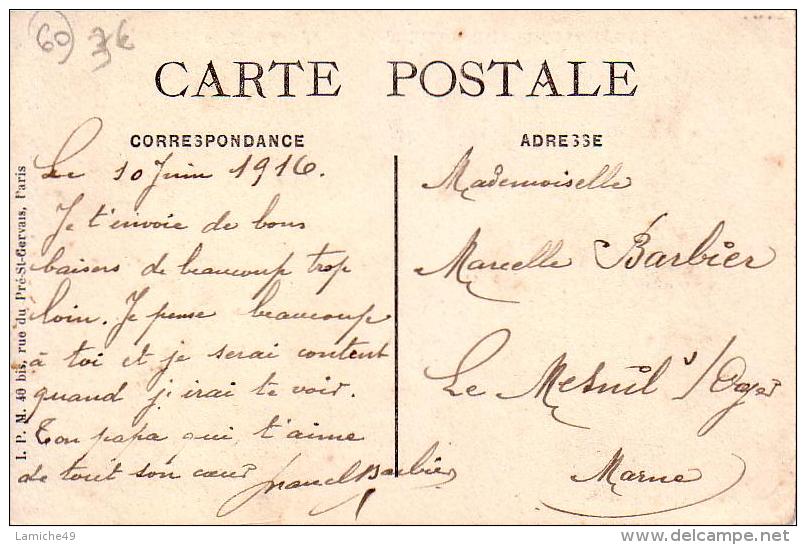 60 76
CARTE POSTALE
CORRESPONDANCE
Le 10 Juin 1916.
Je t'envoie de bons
baisers de beaucoup trop
loin. Je pense beaucoup
à toi et je serai content
quand j'irai te voir.
Ton papa qui t'aime
de tout son cœur
Barbier
ADRESSE
Mademoiselle
Marcelle Barbier
Le Mesnil s/Oger
Marne
I. P. M. 40 bis, rue du Pré-St-Gervais, Paris
Lamiche49
delcampe.net